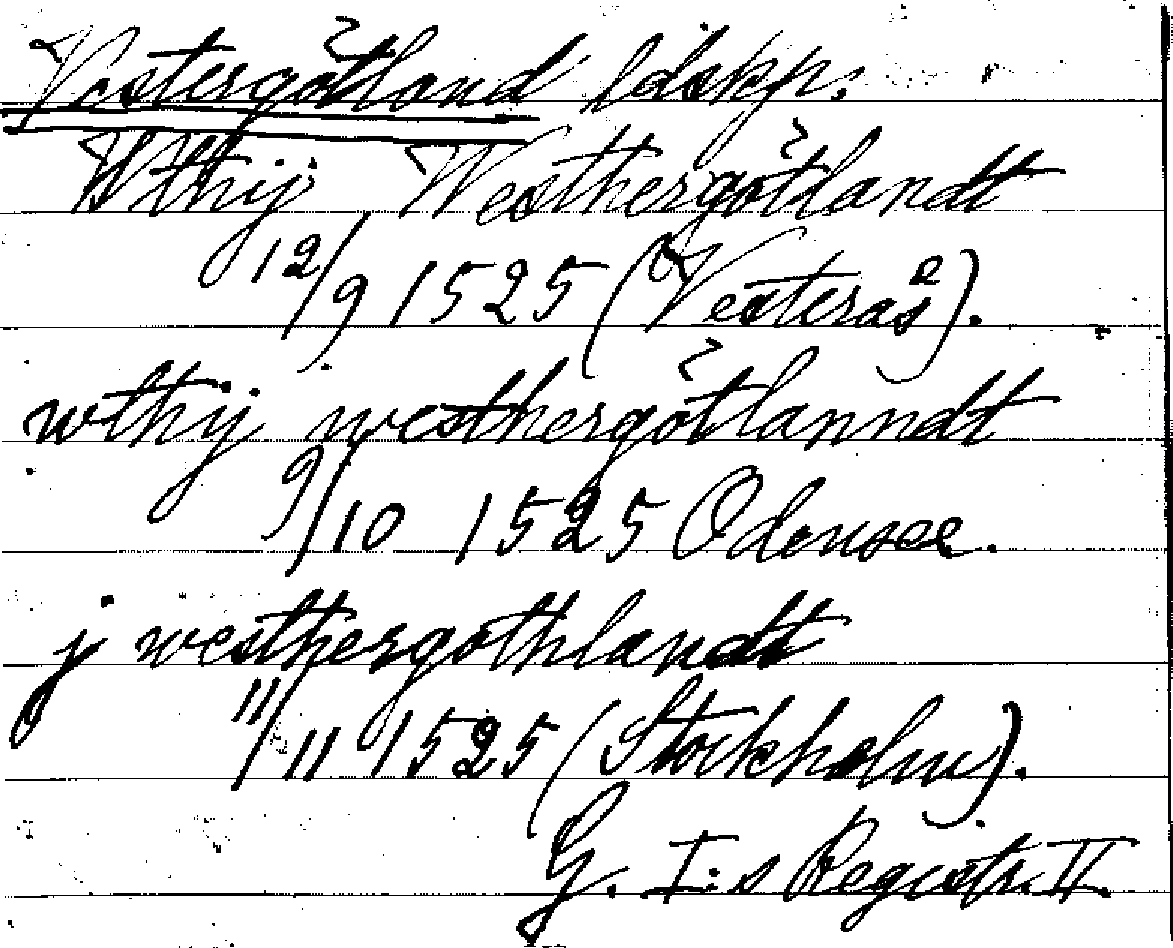 Vestergötland ldskp.
Wthij Westhergötlandt
12/9 1525 (Vesterås).
wthij westhergötlanndt
9/10 1525 Odensee.
j westhergothlandt
11/11 1525 (Stockholm).
G. I:s Registr. II.